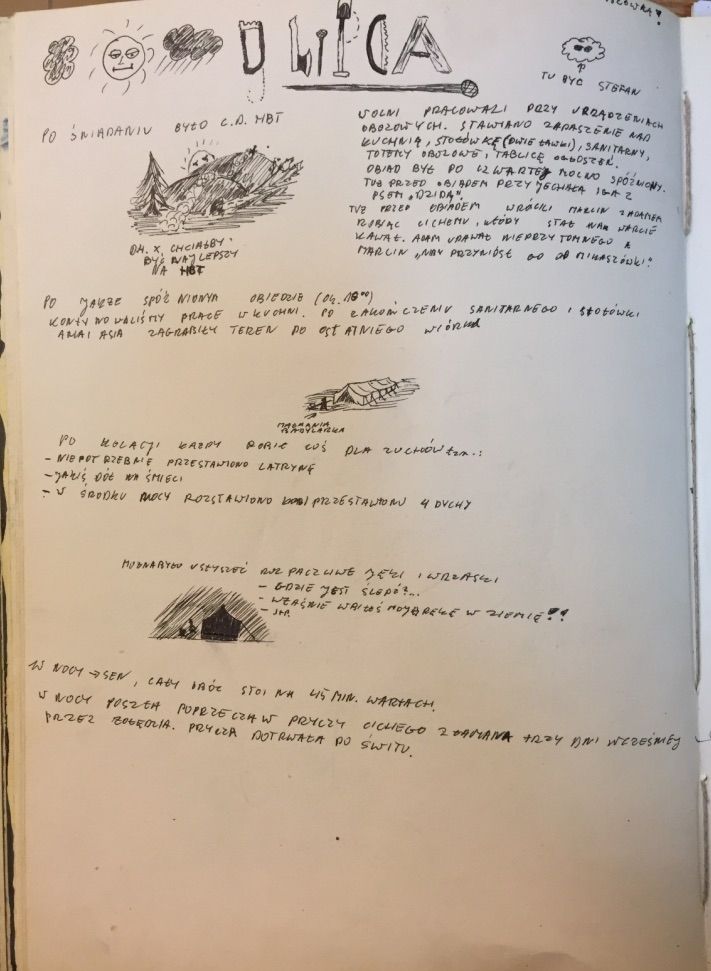 9 LIPCA
TU BYŁ STEFAN
PO ŚNIADANIU BYŁO C.D. HBT
DH. X. CHCIAŁBY
BYĆ NAJLEPSZY
NA HBT
WOLNI PRACOWALI PRZY URZĄDZENIACH
OBOZOWYCH. STAWIANO ZADASZENIE NAD
KUCHNIĄ, STOŁÓWKĘ (DWIE ŁAWKI), SANITARNY,
TOTEMY OBOZOWE, TABLICĘ OGŁOSZEŃ.
OBIAD BYŁ PO CZWARTEJ MOCNO SPÓŹNIONY.
TUŻ PRZED OBIADEM PRZYJECHAŁA IGA Z
PSEM „DZIDĄ”.
TUŻ PRZED OBIADEM WRÓCILI MARCIN Z ADAMEM
ROBIĄC CICHEMU, KTÓRY STAŁ NA WARCIE
KAWAŁ. ADAM UDAWAŁ NIEPRZYTOMNEGO A
MARCIN „ PRZYNIÓSŁ GO OD MIKASZÓWKI”.
PO JAKŻE SPÓŹNIONYM OBIEDZIE (OK. 16⁰⁰)
KONTYNOWALIŚMY PRACE W KUCHNI. PO ZAKOŃCZENIU SANITARNEGO I STOŁÓWKI
ANIA I ASIA ZAGRABIŁY TEREN DO OSTATNIEGO WIÓRKA
PO KOLACJI KAŻDY ROBIŁ COŚ DLA ZUCHÓW tzn.:
- NIEPOTRZEBNIE PRZESTAWIONO LATRYNĘ
- JAKIŚ DÓŁ NA ŚMIECI
- W ŚRODKU NOCY ROZSTAWIONO PRZESTAWIONO 4 DYCHY
MOŻNA BYŁO USŁYSZEĆ ROZPACZLIWE JĘKI I WRZASKI
- GDZIE JEST ŚLEDŹ?...
- WŁAŚNIE WBIŁEŚ MOJĄ RĘKĘ W ZIEMIĘ!!
- ITP.
W NOCY → SEN, CAŁY OBÓZ STOI NA 45 MIN. WARTACH.
W NOCY POSZŁA POPRZECZA W PRYCZY CICHEGO ZŁAMANA TRZY DNI WCZEŚNIEJ
PRZEZ ŻOŁĘDZIA. PRYCZA DOTRWAŁA DO ŚWITU.